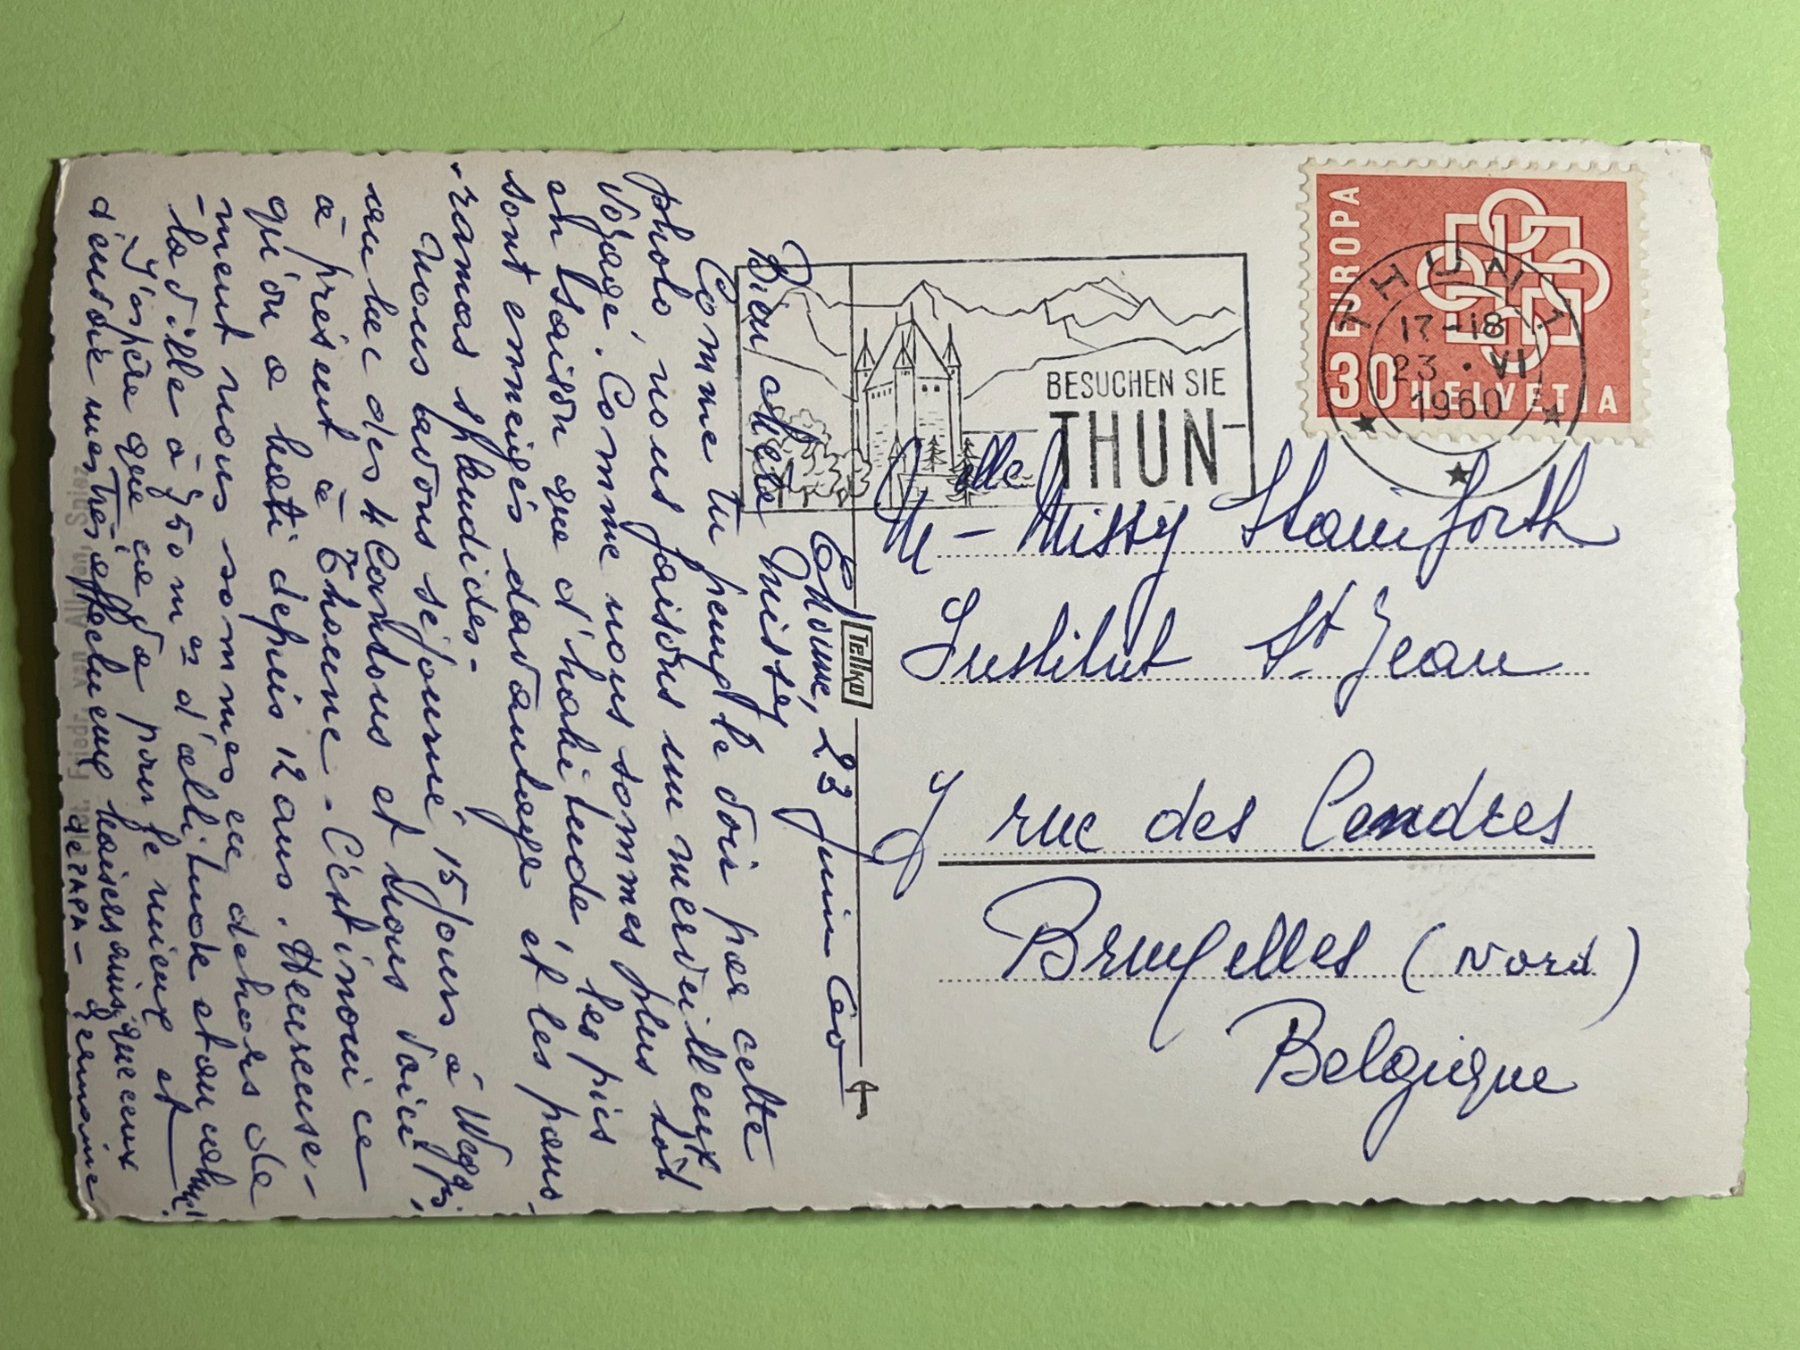 Thoune, 23 Juin 60
Bien chère Missy
Comme tu peux le voir par cette
photo, nous faisons un merveilleux
voyage. Comme nous sommes plus tôt
en saison que d'habitude, les pics
sont enneigés davantage et les pano-
ramas splendides.
Nous avons séjourné 15 jours à Weggis
au lac des 4 Cantons et nous voici,
à présent à Thoune. C'est inouï ce
qu'on a bâti depuis 12 ans. Heureuse-
ment nous sommes en dehors de
la ville à 750 m d'altitude et au calme!
J'espère que ça va pour le mieux et
d'envoie mes très affectueux baisers ainsi que ceux
de PAPA - Germaine
Tellko
BESUCHEN SIE
THUN
EUROPA
30 HELVETIA
THUN 1
17-18
23.VI
1960
Mlle Missy Staniforth
Institut St Jean
7 rue des Cendres
Bruxelles (Nord)
Belgique